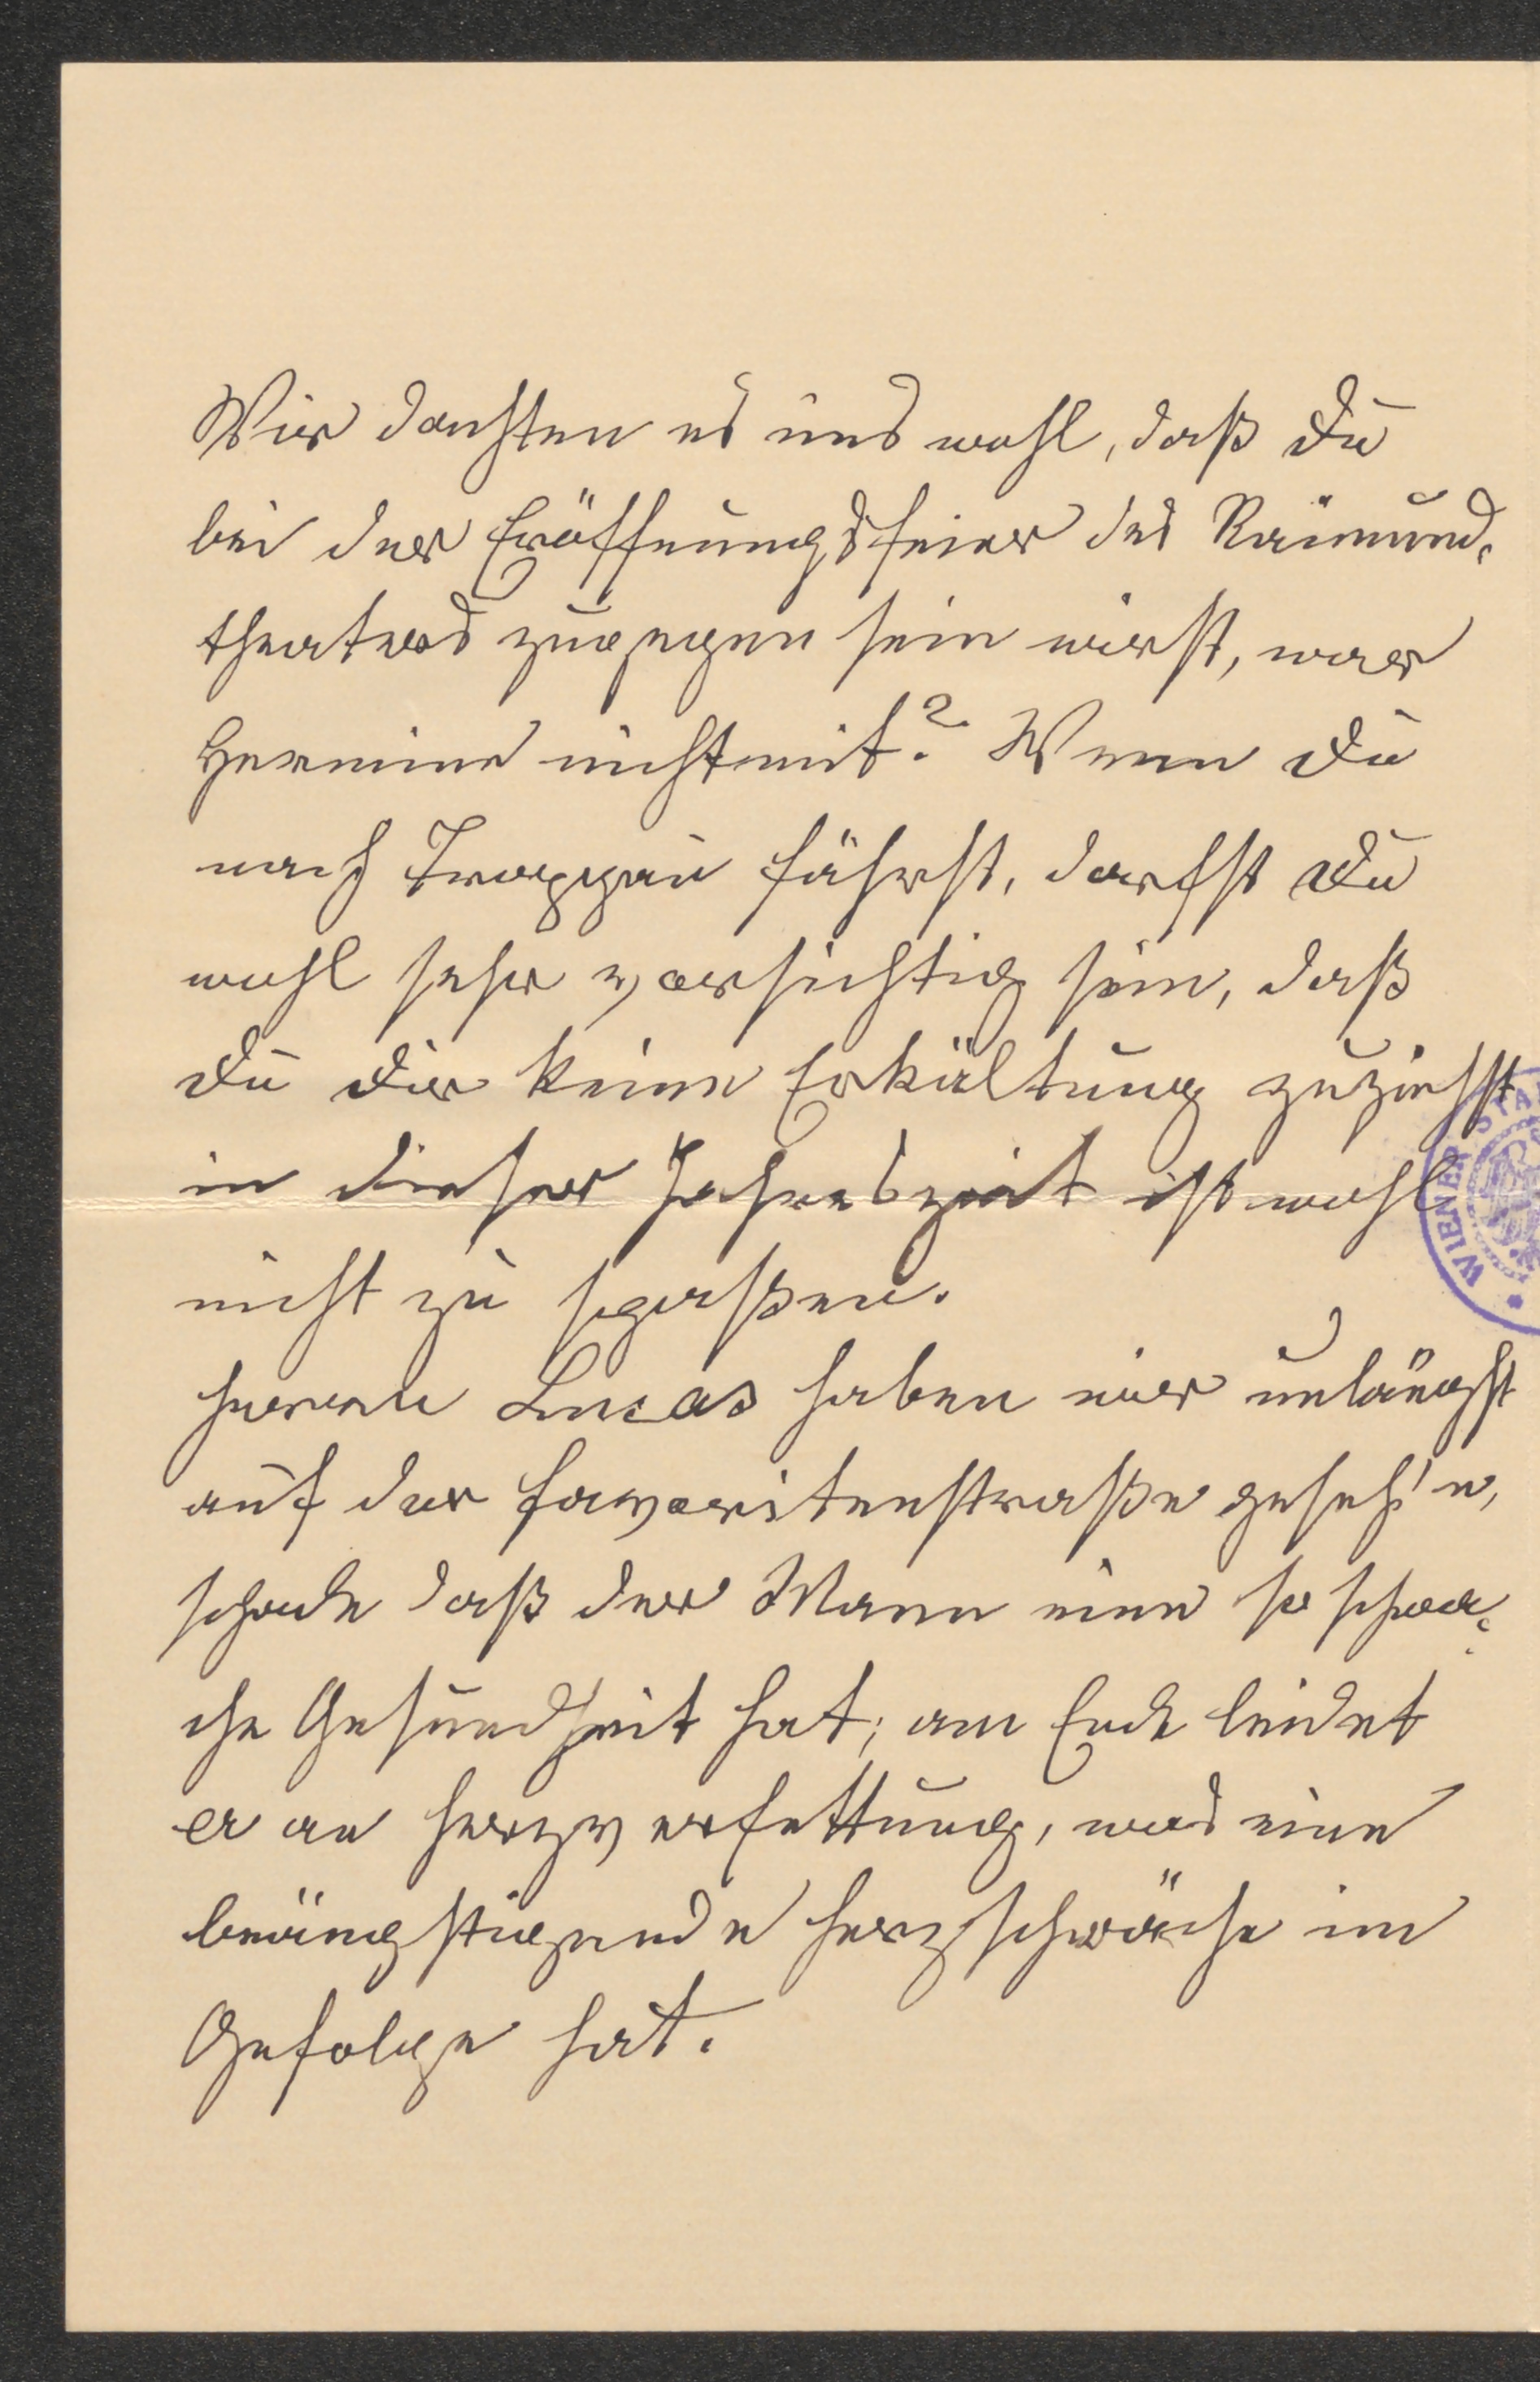 Wir dachten es uns wohl, daß Du
bei der Eröffnungsfeier des Raimund-
theaters zugegen sein wirst, war
Hermine nicht mit? Wenn Du
nach Troppau fährst, darfst Du
wohl sehr vorsichtig sein, daß
Du Dir keine Erkältung zuziehst
in dieser Jahreszeit ist wohl
nicht zu spaßen.
Herrn Lucas haben wir unlängst
auf der Favoritenstraße geseh'n,
schade daß der Mann eine so schwa-
che Gesundheit hat; am Ende leidet
er an Herzverfettung, was eine
beängstigende Herzschwäche im
Gefolge hat.
WIENER STA